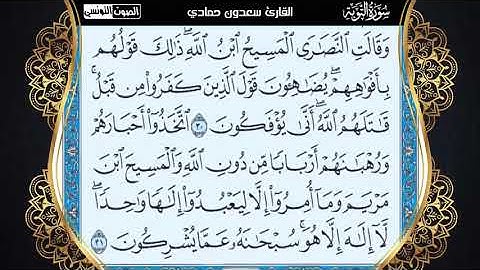 سورة التوبة
القارئ سعدون حمادي
الصوت التونسي
وَقَالَتِ النَّصَارَى الْمَسِيحُ ابْنُ اللَّهِ ذَٰلِكَ قَوْلُهُم
بِأَفْوَٰهِهِمْ يُضَاهُونَ قَوْلَ الَّذِينَ كَفَرُواْ مِن قَبْلُ
قَاتَلَهُمُ اللَّهُ أَنَّىٰ يُؤْفَكُونَ ٣٠ اتَّخَذُواْ أَحْبَارَهُمْ
وَرُهْبَانَهُمْ أَرْبَابًا مِّن دُونِ اللَّهِ وَالْمَسِيحَ ابْنَ
مَرْيَمَ وَمَا أُمِرُواْ إِلَّا لِيَعْبُدُواْ إِلَٰهًا وَاحِدًا
لَّا إِلَٰهَ إِلَّا هُوَ سُبْحَٰنَهُ عَمَّا يُشْرِكُونَ ٣١